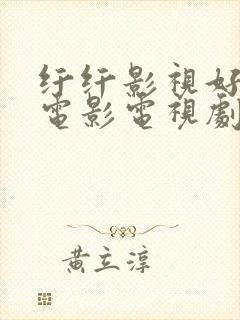 纤纤影視好
電影電視劇
黄立淳